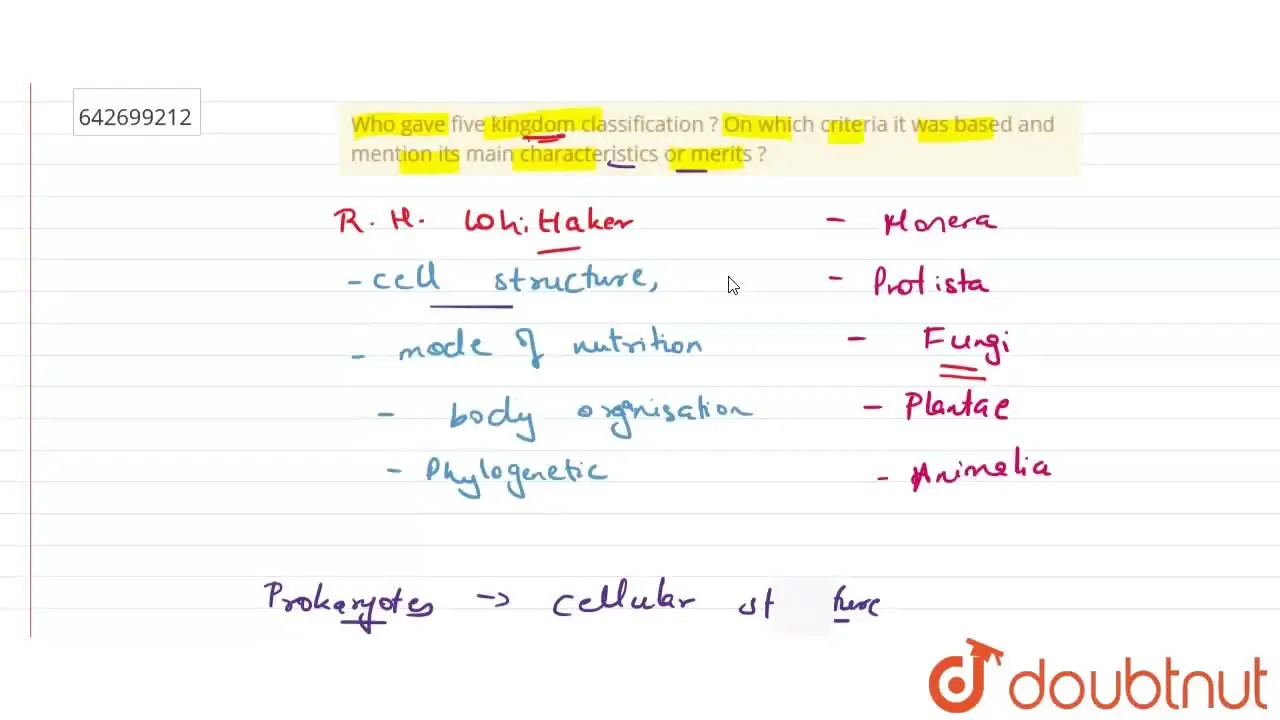 642699212
Who gave five kingdom classification ? On which criteria it was based and
mention its main characteristics or merits ?
R. H. Whittaker
- cell structure,
- mode of nutrition
- body orgnisation
- Phylogenetic
- Monera
- Protista
- Fungi
- Plantae
- Animalia
Prokaryotes → cellular st ture
doubtnut